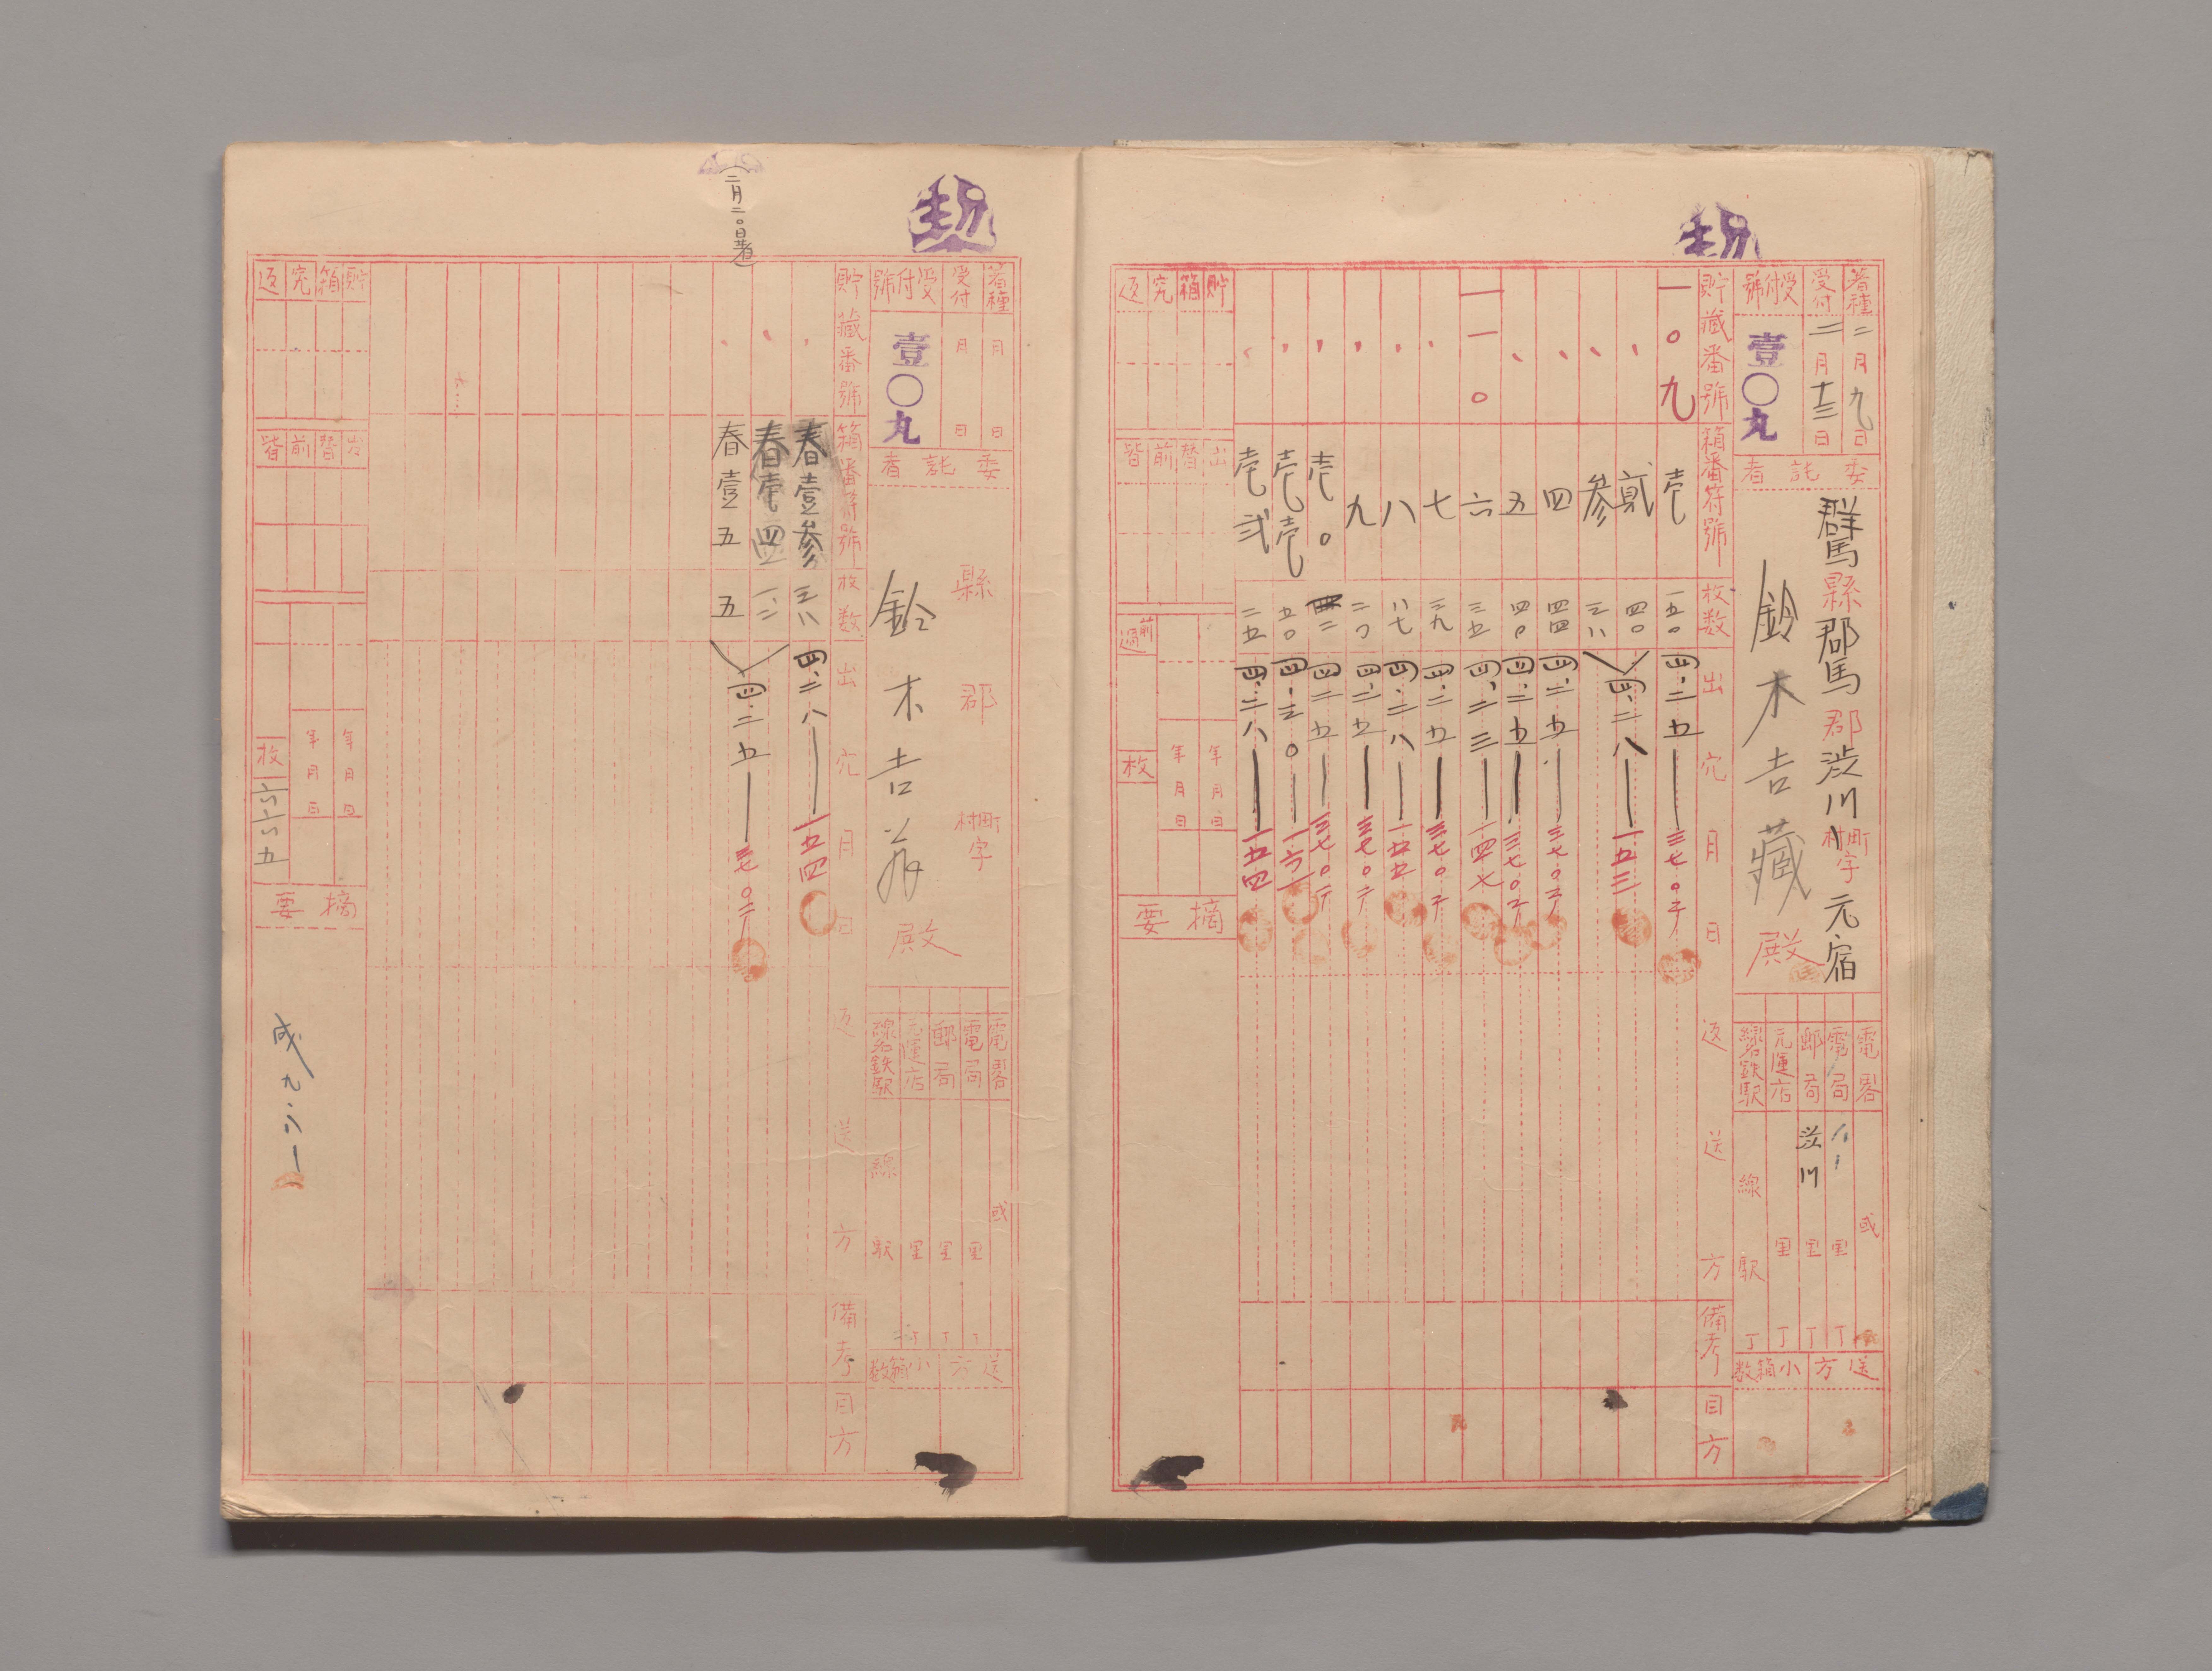 着種 二月九日
受付 二月十三日
受付號 壹〇九
委託者
群馬縣群馬郡澁川町村字元宿
鈴木吉藏殿
電畧 或
電局 里丁
郵局 澁川 里丁
元運店 里丁
線名鉄駅 線駅丁
送方
小箱数
貯藏番號 箱番符號 枚数 出穴月日 返送方 備考 目方
一〇九 壱 一五〇 四、二五 三七〇
貳 四〇
参 三八 四、二八 一五三
四 四四 四、二五 三七〇
五 四〇 四、二五 三七〇
一一〇 六 三五 四、二三 一四七
七 三九 四、二五 三七〇
八 八七 四、二八 一五五
九 二〇 四、二五 三七〇
壱〇 四二五 三七〇
壱壱 五〇 四、三〇 一六一
壱弐 二五 四、二八 一五四
貯箱究返
出替前皆
年月日
年月日
前過
枚
摘要
二月二〇日着
着種 月日
受付 月日
受付號 壹〇九
委託者
縣郡町村字
鈴木吉殿
電畧 或
電局 里丁
郵局 里丁
元運店 里丁
線名鉄駅 線駅
送方
小箱数
貯藏番號 箱番符號 枚数 出穴月日 返送方 備考 目方
春壹参 三八 四、二八 一五四
春壱四 一、二
春壹五 五 四、二五 三七〇
貯箱究返
出替前皆
年月日
年月日
枚 六六五
摘要
成九、六、一